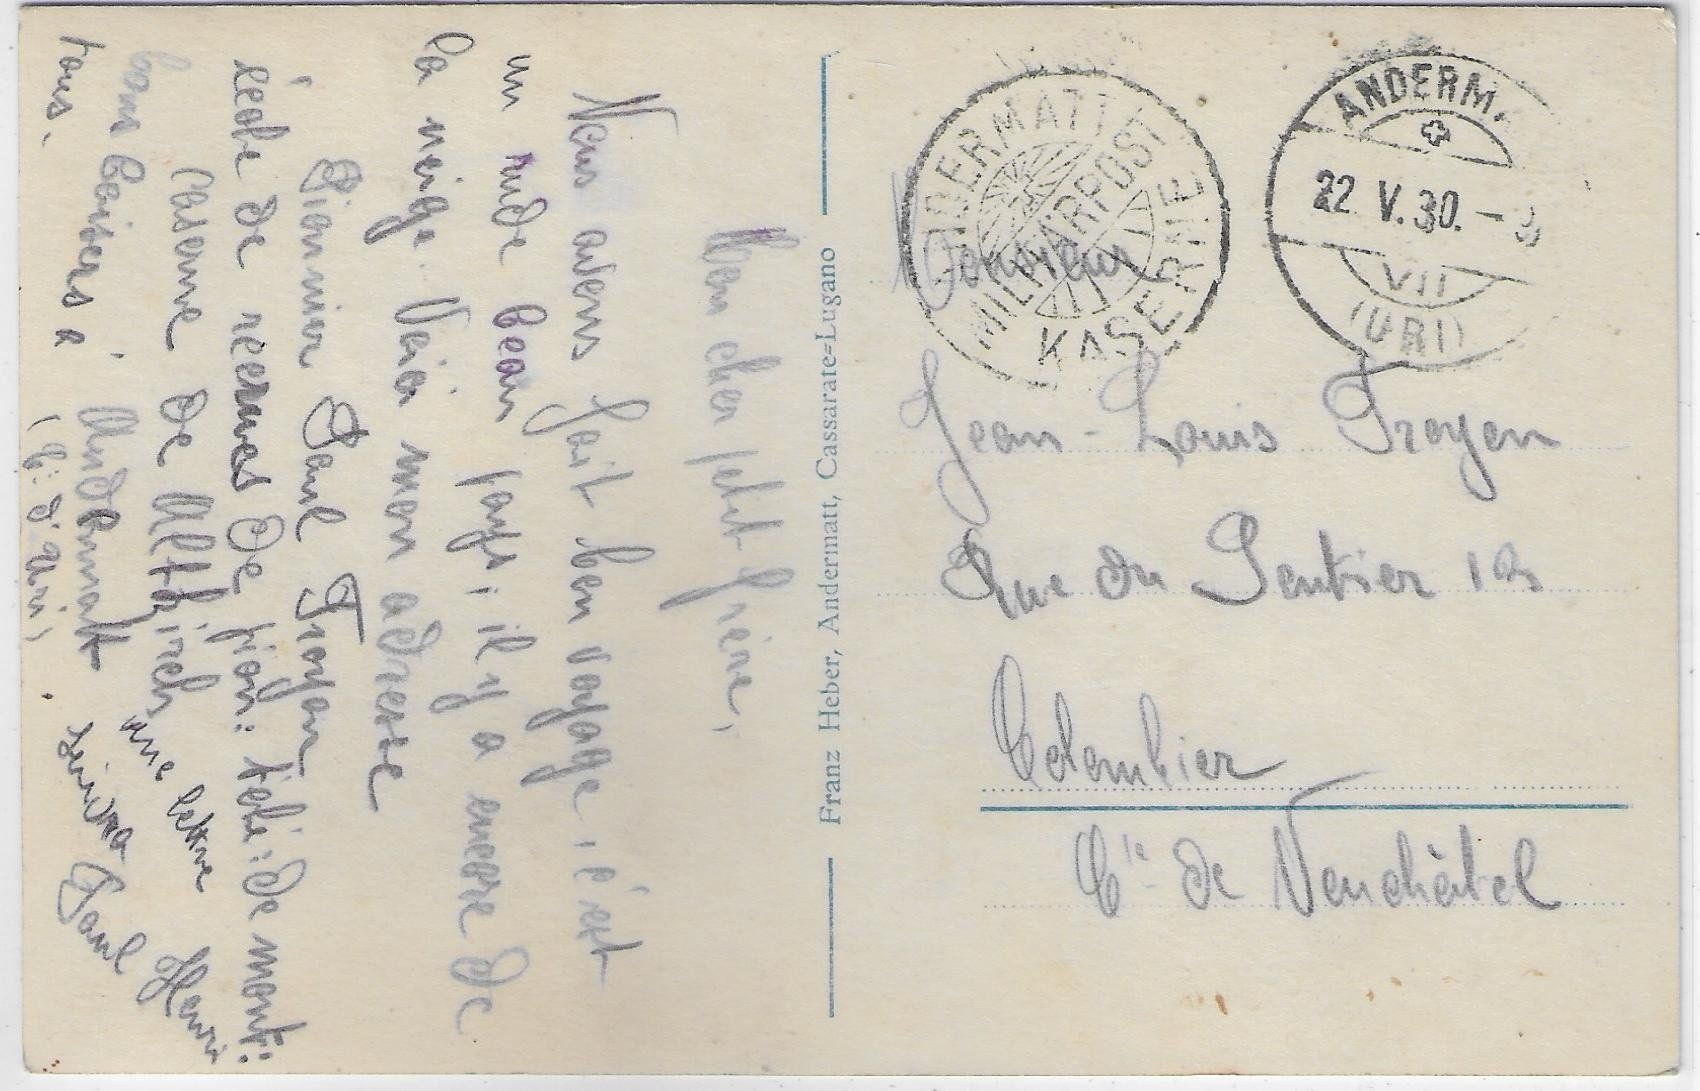 Mon cher petit frère,
Nous avons fait bon voyage, c'est
un rude beau pays ; il y a encore de
la neige. Voici mon adresse
Pionnier Paul Troyon
école de recrues de pion: télé: de mont:
caserne de Altkirch
bons baisers à Andermatt
tous. (Ct: d'Uri)
une lettre
suivra Paul
Henri
Franz Heber, Andermatt, Cassarate-Lugano
ANDERMATT
MILITÄRPOST
KASERNE
ANDERMA
22 V.30.-
VII
(URI)
Monsieur
Jean-Louis Troyon
Rue du Sentier 12
Colombier
Ct. de Neuchâtel